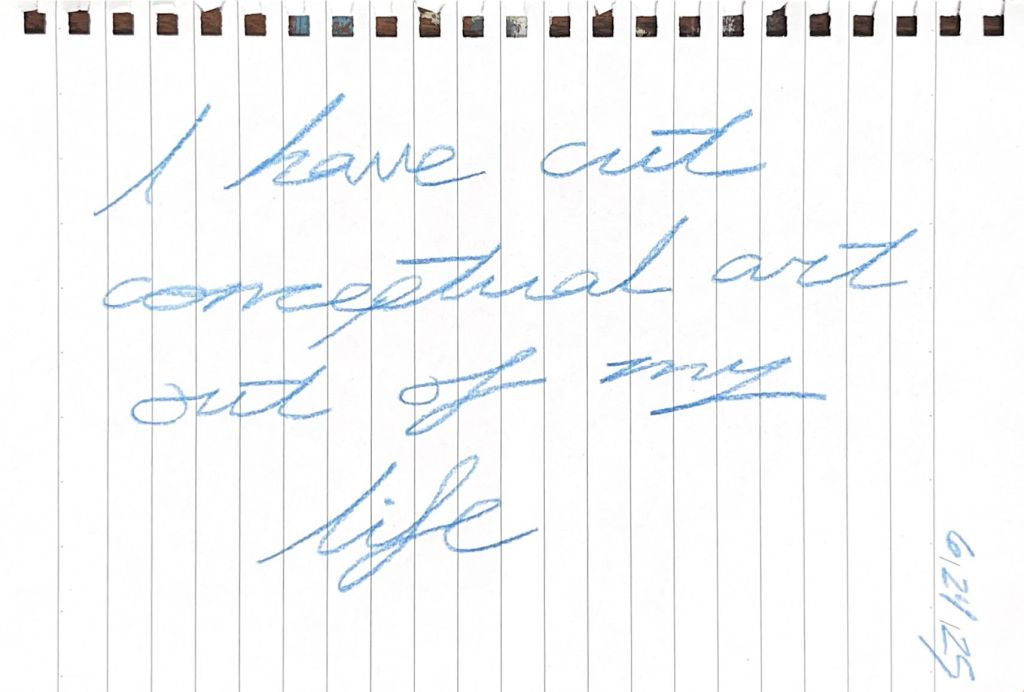 I have cut
conceptual art
out of my
life
6/24/25